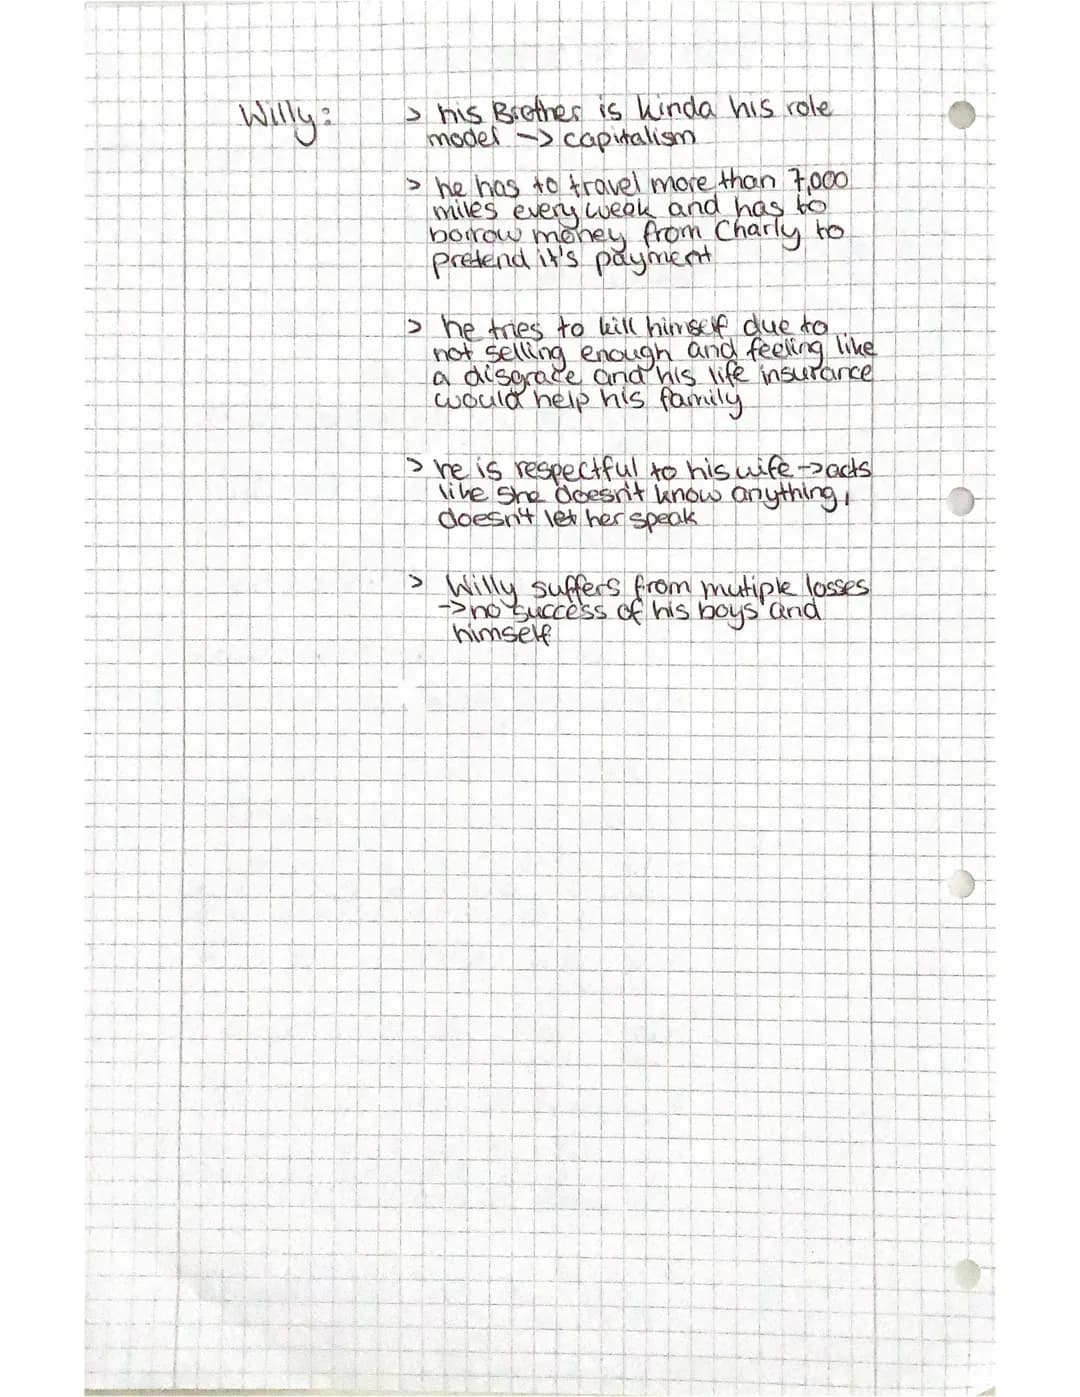 Willy: > his Brother is kinda his role
model -> capitalism
> he has to travel more than 7,000
miles every week and has to
borrow money from Charly to
pretend it's payment
> he tries to kill himself due to
not selling enough and feeling like
a disgrace and his life insurance
would help his family
> he is respectful to his wife -> acts
like she doesn't know anything,
doesn't let her speak
> Willy suffers from mutiple losses
-> no success of his boys and
himself